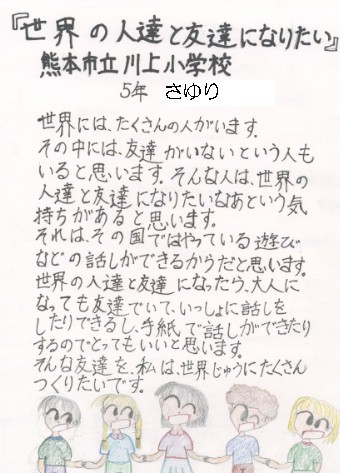 『世界の人達と友達になりたい』
熊本市立川上小学校
5年 さゆり
世界には、たくさんの人がいます。
その中には、友達がいないという人も
いると思います。そんな人は、世界の
人達と友達になりたいなあという気
持ちがあると思います。
それは、その国ではやっている遊び
などの話しができるからだと思います。
世界の人達と友達になったら、大人に
なっても友達でいて、いっしょに話しを
したりできるし、手紙で話しができたり
するのでとってもいいと思います。
そんな友達を、私は、世界じゅうにたくさん
つくりたいです。